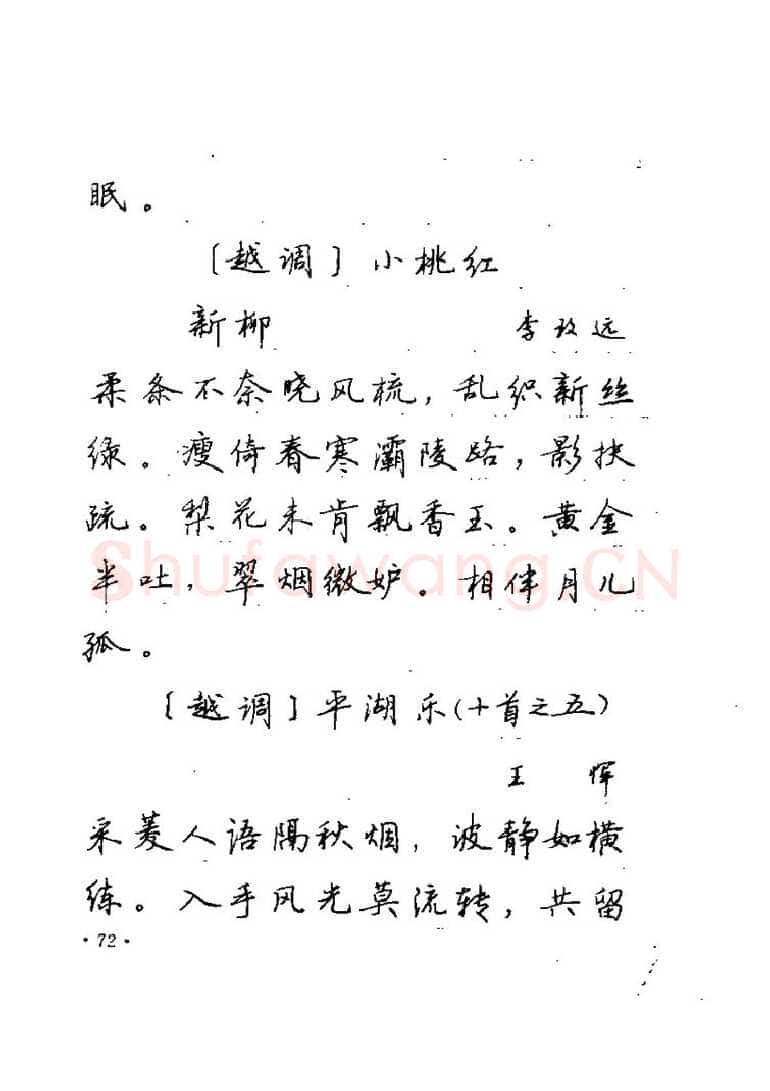 眠。
〔越调〕小桃红
新柳 李致远
柔条不奈晓风梳，乱织新丝
绿。瘦倚春寒灞陵路，影扶
疏。梨花未肯飘香玉。黄金
半吐，翠烟微妒。相伴月儿
孤。
〔越调〕平湖乐(十首之五)
王恽
采菱人语隔秋烟，波静如横
练。入手风光莫流转，共留
·72·
Shufawang.CN